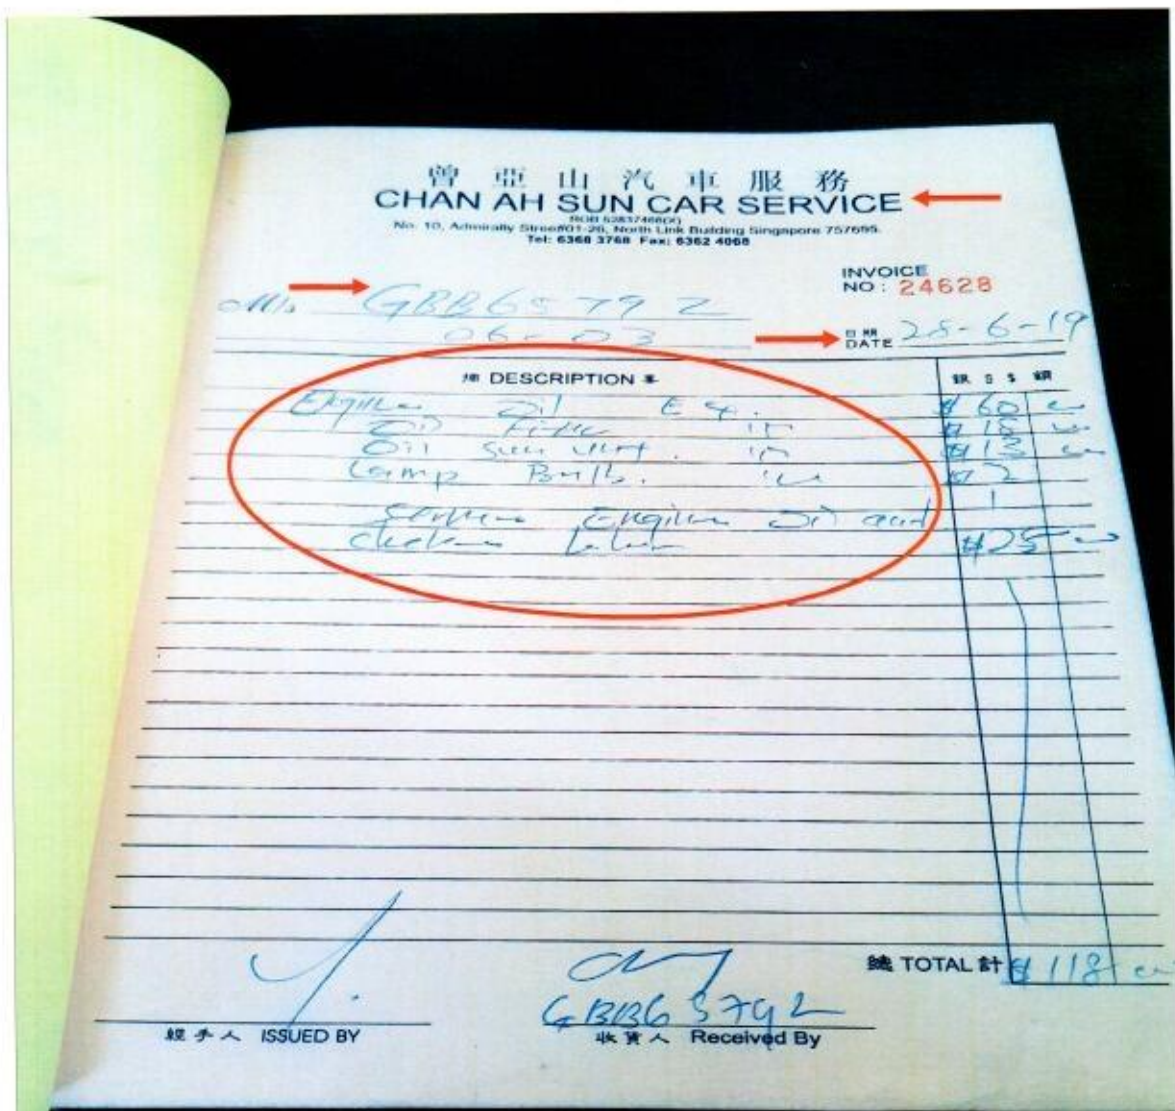 曾亞山汽車服務
CHAN AH SUN CAR SERVICE
No. 10, Admiralty Street#01-26, North Link Building Singapore 757695.
Tel: 6368 3768 Fax: 6362 4068
INVOICE
NO: 24628
M/s GBB6579Z
06-03
日期
DATE 28-6-19
DESCRIPTION
銀 $ 額
Engine Oil $60
Oil $18
Oil $13
Lamp Bulb. $2
Engine Oil and
$25
總 TOTAL 計 $118
GBB6579Z
經手人 ISSUED BY
收貨人 Received By